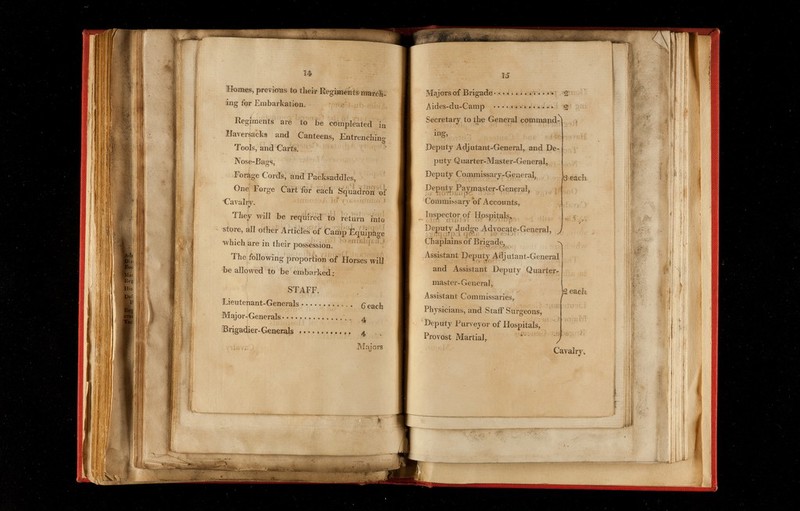 14
Homes, previous to their Regiments march-
ing for Embarkation.
Regiments are to be compleated in
Haversacks and Canteens, Entrenching
Tools, and Carts.
Nose-Bags,
Forage Cords, and Packsaddles,
One Forge Cart for each Squadron of
Cavalry.
They will be required to return into
store, all other Articles of Camp Equipage
which are in their possession.
The following proportion of Horses will
be allowed to be embarked:
STAFF.
Lieutenant-Generals ............ 6 each
Major-Generals ................ 4
Brigadier-Generals ............ 4
Majors
15
Majors of Brigade .............. 2
Aides-du-Camp .............. 2
Secretary to the General command-
ing,
Deputy Adjutant-General, and De-
puty Quarter-Master-General,
Deputy Commissary-General,
each
Deputy Paymaster-General,
Commissary of Accounts,
Inspector of Hospitals,
Deputy Judge Advocate-General,
Chaplains of Brigade,
Assistant Deputy Adjutant-General
and Assistant Deputy Quarter-
master-General,
2 each
Assistant Commissaries,
Physicians, and Staff Surgeons,
Deputy Purveyor of Hospitals,
Provost Martial,
Cavalry.